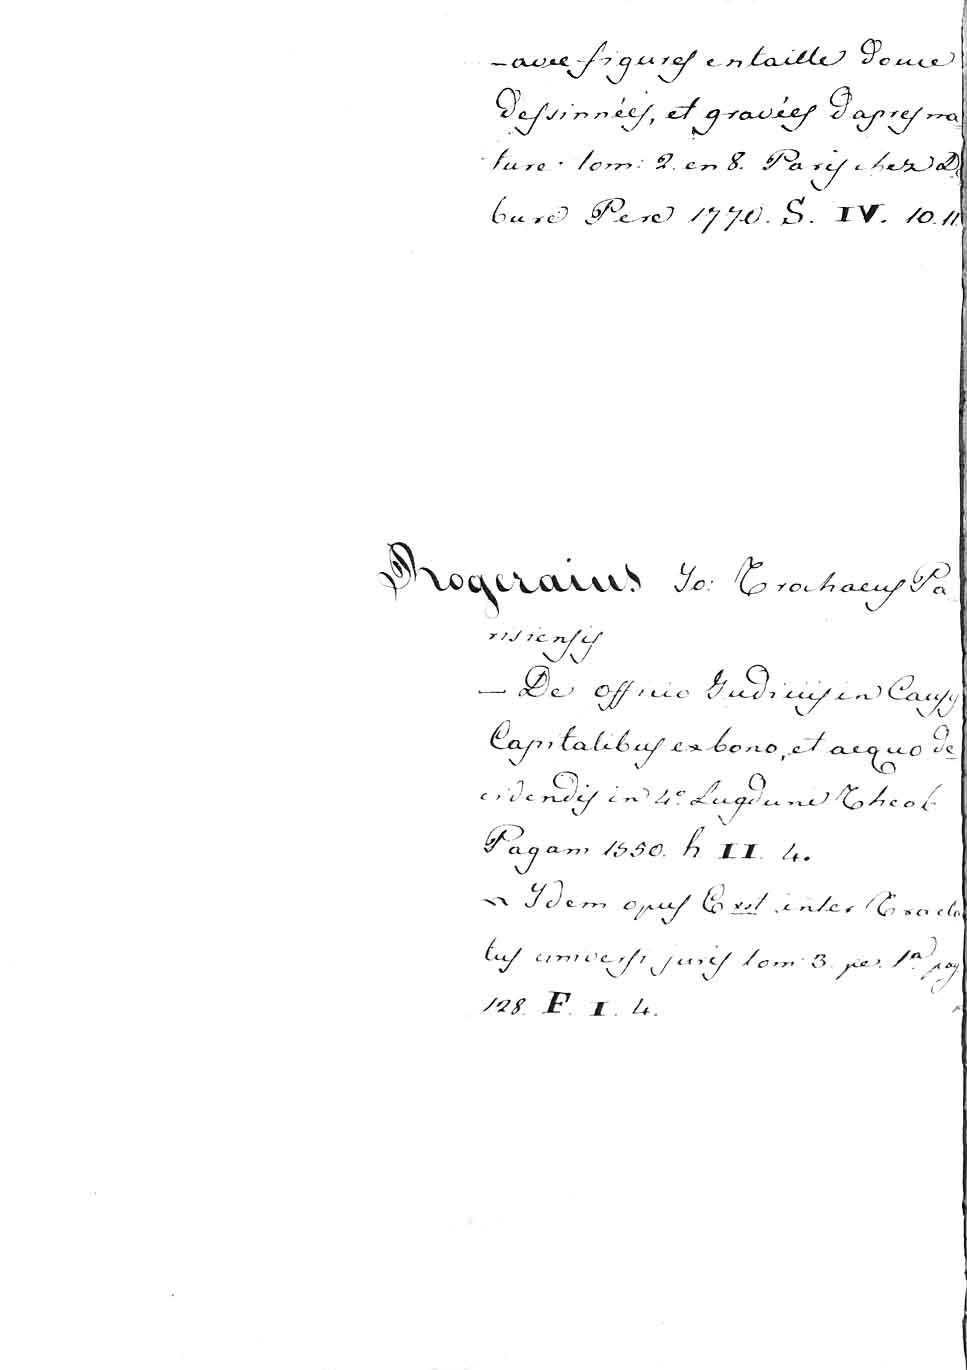 – avec figures en taille douce
dessinnées, et gravées d'apres na
ture. tom: 2. en 8. Paris chez D
bure Pere 1770. S. IV. 10. 11
Rogeraius Jo: Trochaeus Pa
risiensis
– De officio Judicis in Causis
Capitalibus ex bono, et aequo de
cidendis in 4º Lugduni Theob
Pagam 1550. h II. 4.
~ Idem opus Exst inter Tracta
tus universi juris tom: 3. pe. 1ª pag
128. F. I. 4.